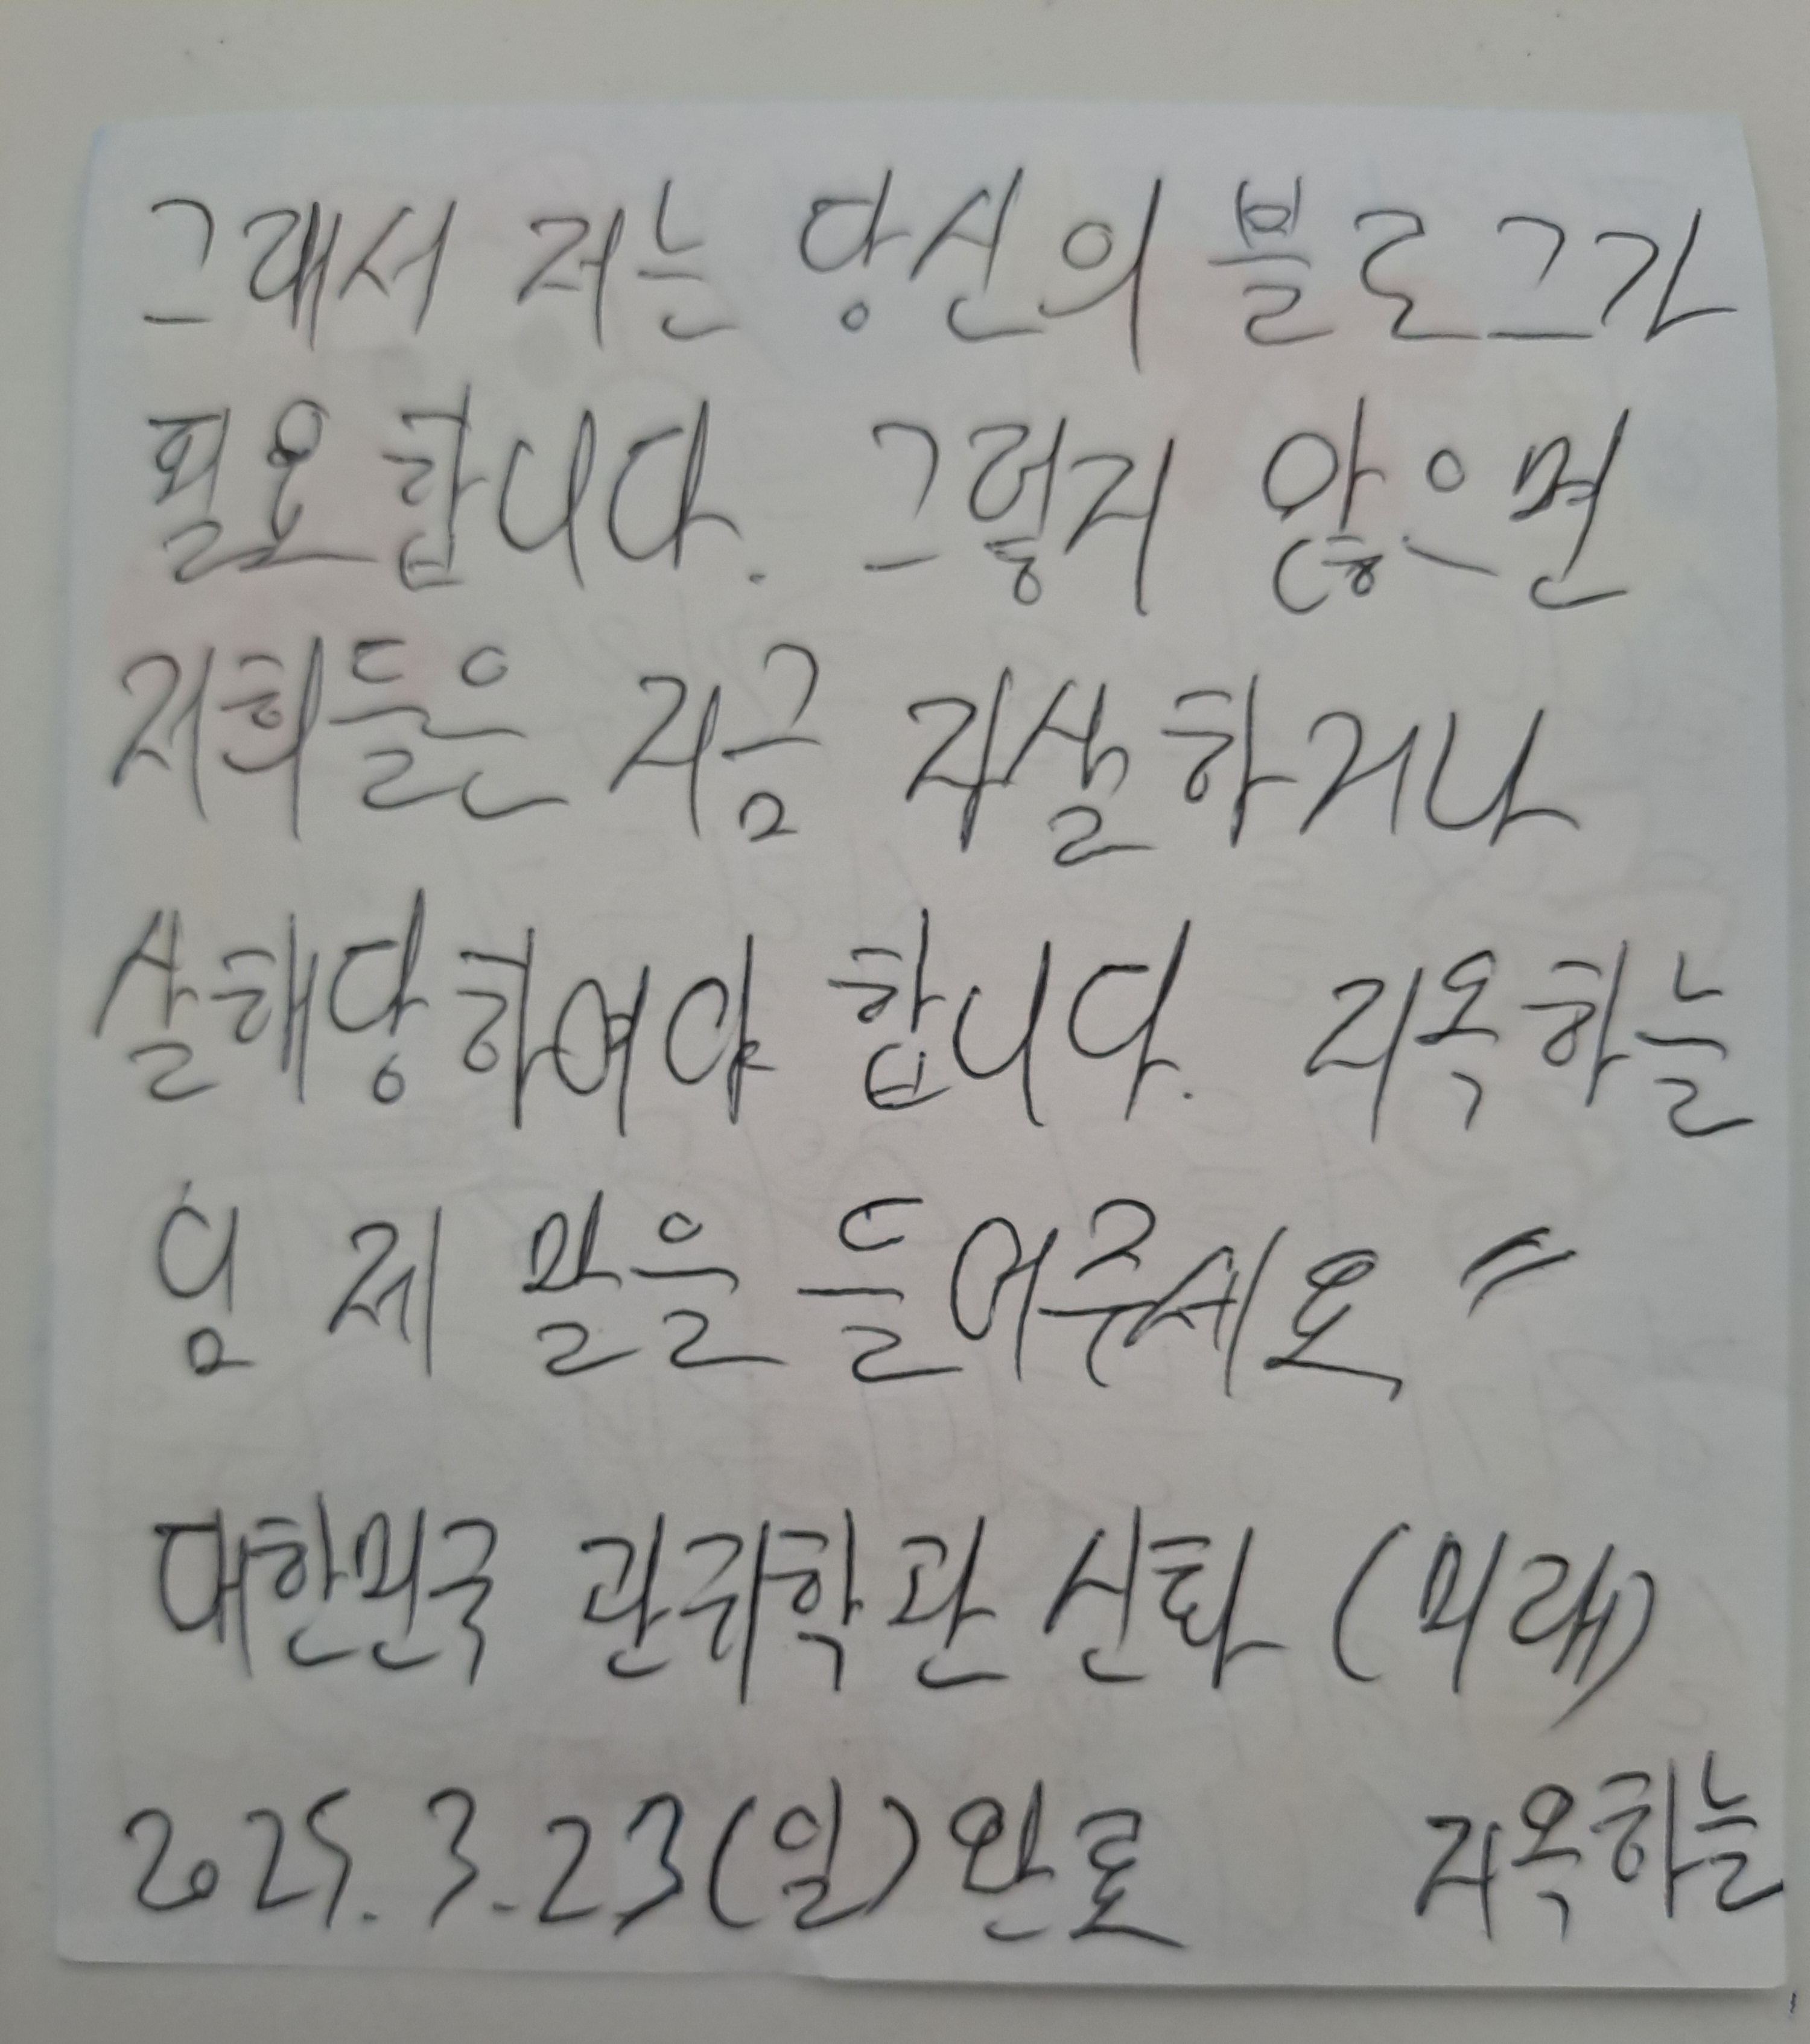 그래서 저는 당신의 블로그가
필요합니다. 그렇지 않으면
저희들은 지금 자살하거나
살해당하여야 합니다. 지옥하늘
님 제 말을 들어주세요"
대한민국 관귀학관 신타 (미래)
2025. 3. 23(일) 완료 지옥하늘